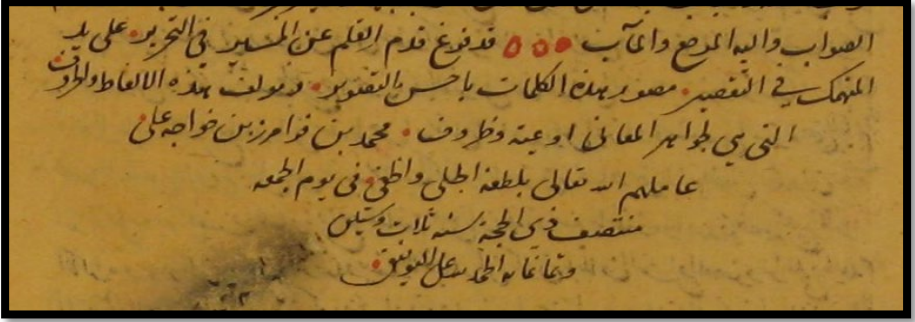 الصواب واليه المرجع والمآب ٥٥٥ قد فرغ قدم القلم عن المسير في التحرير على يد
المنهمك في التقصير مصور هذه الكلمات باحسن التصوير ومولف هذه الالفاظ والحروف
التي هي لجواهر المعاني اوعية وظروف محمد بن فرامرز بن خواجه على
عاملهم الله تعالى بلطفه الجلي والخفي في يوم الجمعه
منتصف ذي الحجة سنه ثلاث وستين
وثمانمايه الحمد لله على التوفيق